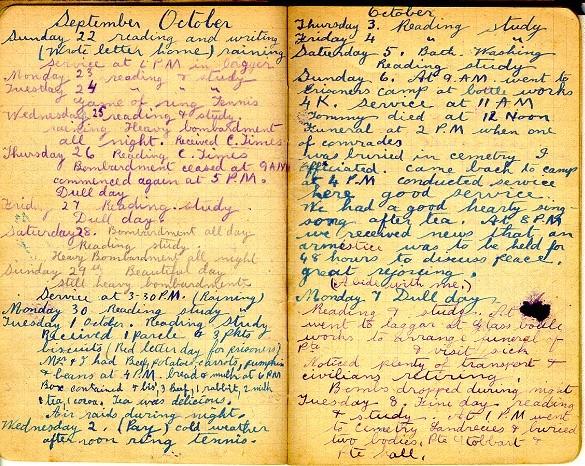 September October
Sunday 22 reading and writing
(wrote letter home) raining
service at 6 P.M in
Monday 23 reading & study
Tuesday 24 " " "
Game of ring Tennis
Wednesday 25 reading & study.
raining Heavy bombardment
all night. Received C. Times
Thursday 26 Reading C. Times
Bombardment ceased at 9 AM
commenced again at 5 P.M.
Dull day.
Friday 27 Reading study
Dull day.
Saturday 28. Bombardment all day
Reading study.
Heavy Bombardment all night
Sunday 29th Beautiful day
still heavy bombardment.
Service at 3-30 P.M. (Raining)
Monday 30 Reading study "
Tuesday 1 October. Reading study
Received 1 Parcel & 3 Pkts
biscuits (Red letter day for prisoners)
& I had Beef, potatoes, carrots, pumpkin
& beans at 4 P.M. bread & milk at 6 P.M
Box contained 4 bis, 3 Beef, 1 rabbit, 2 milk
& tea, cocoa. Tea was delicious.
Air raids during night.
Wednesday 2. (Pay) cold weather
afternoon ring tennis.
October
Thursday 3. Reading study
Friday 4
Saturday 5. Bath. Washing
Reading study
Sunday 6. At 9 A.M. went to
Prisoners camp at bottle works
4 K. service at 11 AM
Tommy died at 12 Noon
Funeral at 2 P.M when one
of comrades
was buried in cemetry I
officiated. came back to camp
at 4 P.M conducted service
here good service
We had a good hearty sing
song after tea. At 8 P.M
we received news that an
armestice was to be held for
48 hours to discuss peace.
great rejoicing.
(Abide with me.)
Monday 7 Dull day
Reading & study. At
went to laggar at Glass bottle
works to arrange funeral of
Pte & visit sick
Noticed plenty of transport &
civilians returning.
Bombs dropped during night
Tuesday 8. Fine day reading
& study. At 1 P.M went
to Cemetry Landrecies & buried
two bodies, Pte &
Pte